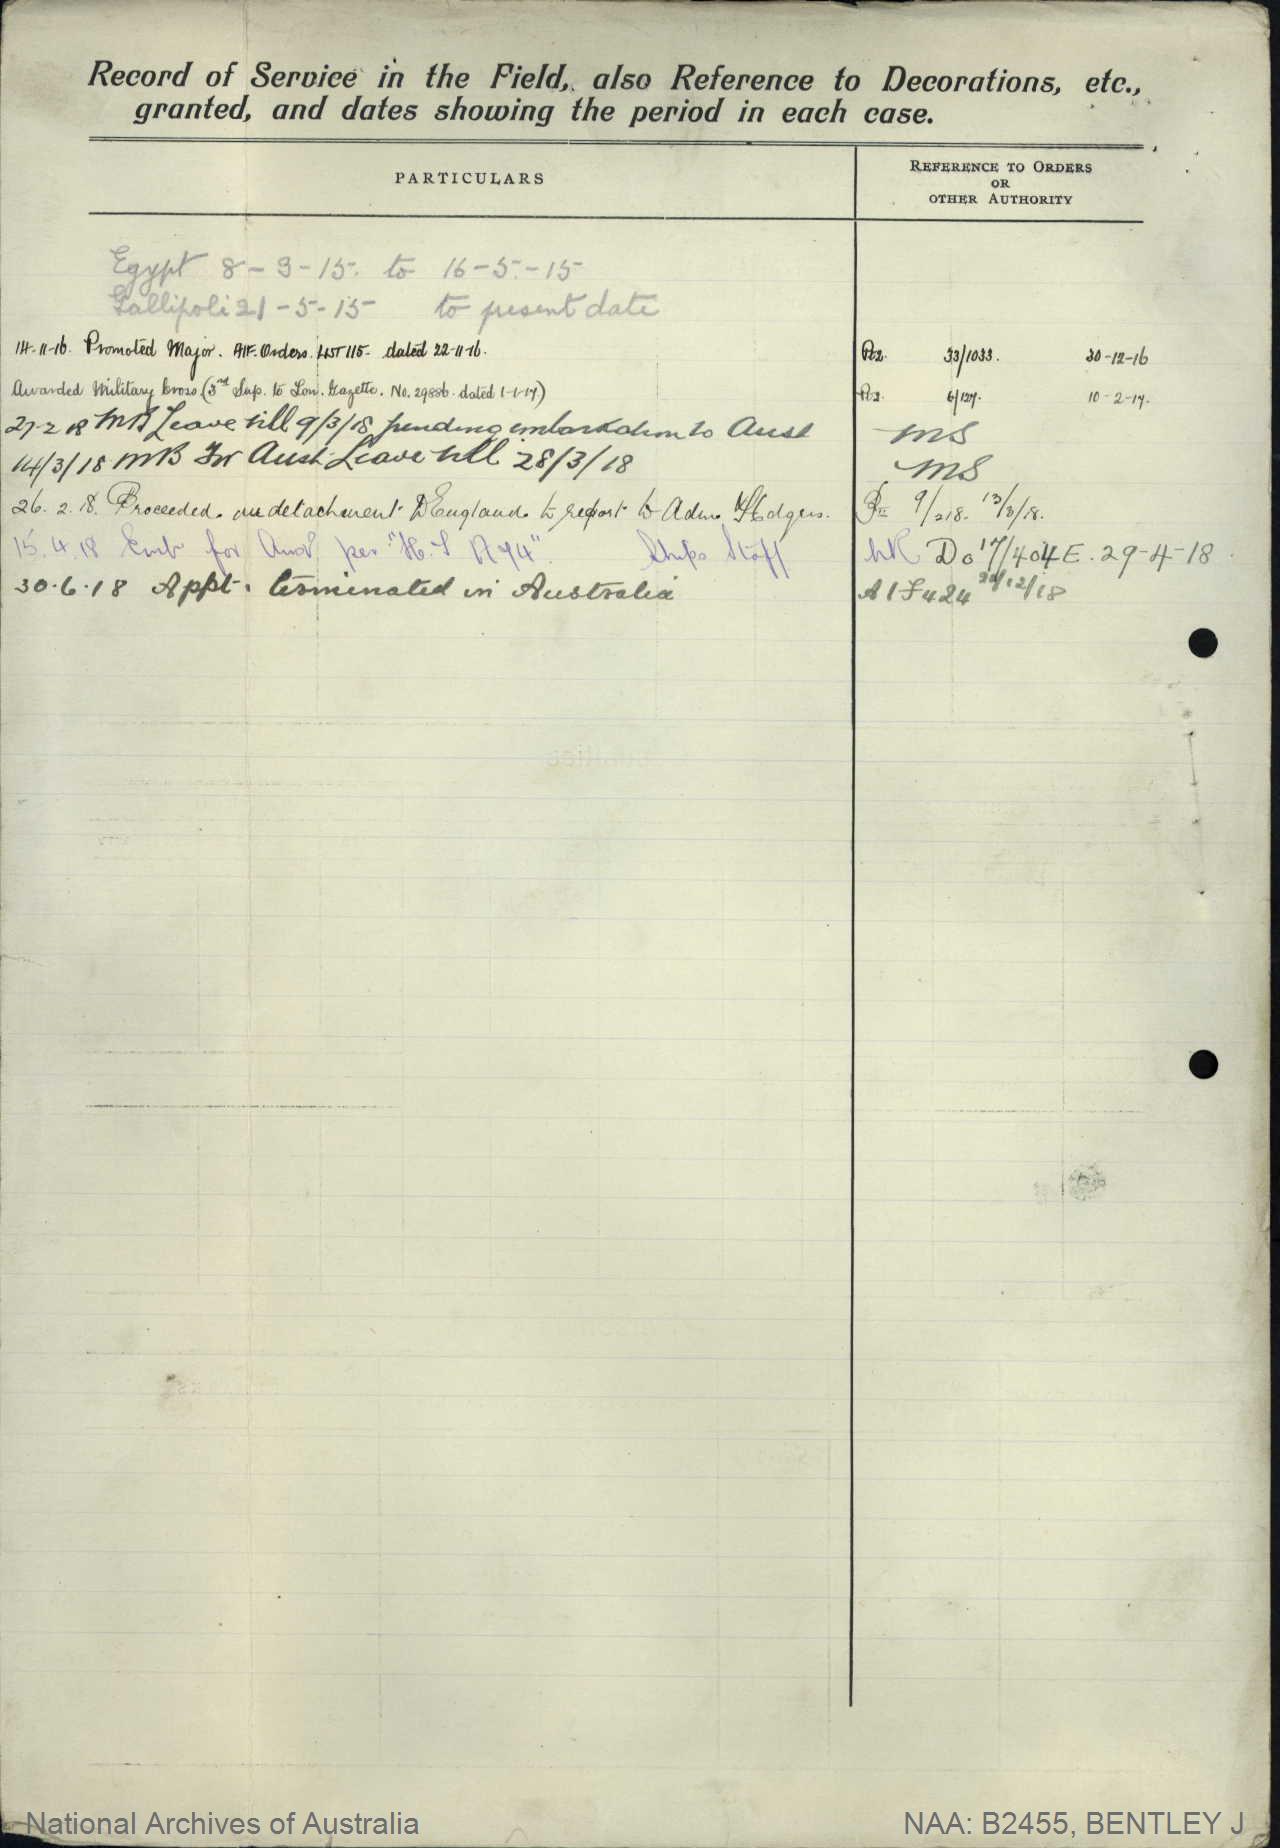 Record of Service in the Field, also Reference to Decorations, etc.,
granted, and dates showing the period in each case.
PARTICULARS
REFERENCE TO ORDERS
OR
OTHER AUTHORITY
Egypt 8-3-15. to 16-5-15
Gallipoli 21-5-15 to present date
14-11-16. Promoted Major. AIF. Orders. LIST 115. dated 22-11-16. Pt2. 33/1033. 30-12-16
Awarded Military Cross. (3rd Sup. to Lon. Gazette. No. 29886. dated 1-1-17) Pt2. 6/127. 10-2-17.
27-2-18 MB Leave till 9/3/18 pending embarkation to Aust MS
14/3/18 MB For Aust. Leave till 28/3/18 MS
26.2.18. Proceeded on detachment to England to report to Adm. Hdqrs. 9/218. 13/3/18.
15.4.18 Emb for Aust per "H.T A74". Ships Staff Do 17/404E. 29-4-18
30.6.18 Appt. terminated in Australia AIF 424 /12/18
National Archives of Australia
NAA: B2455, BENTLEY J